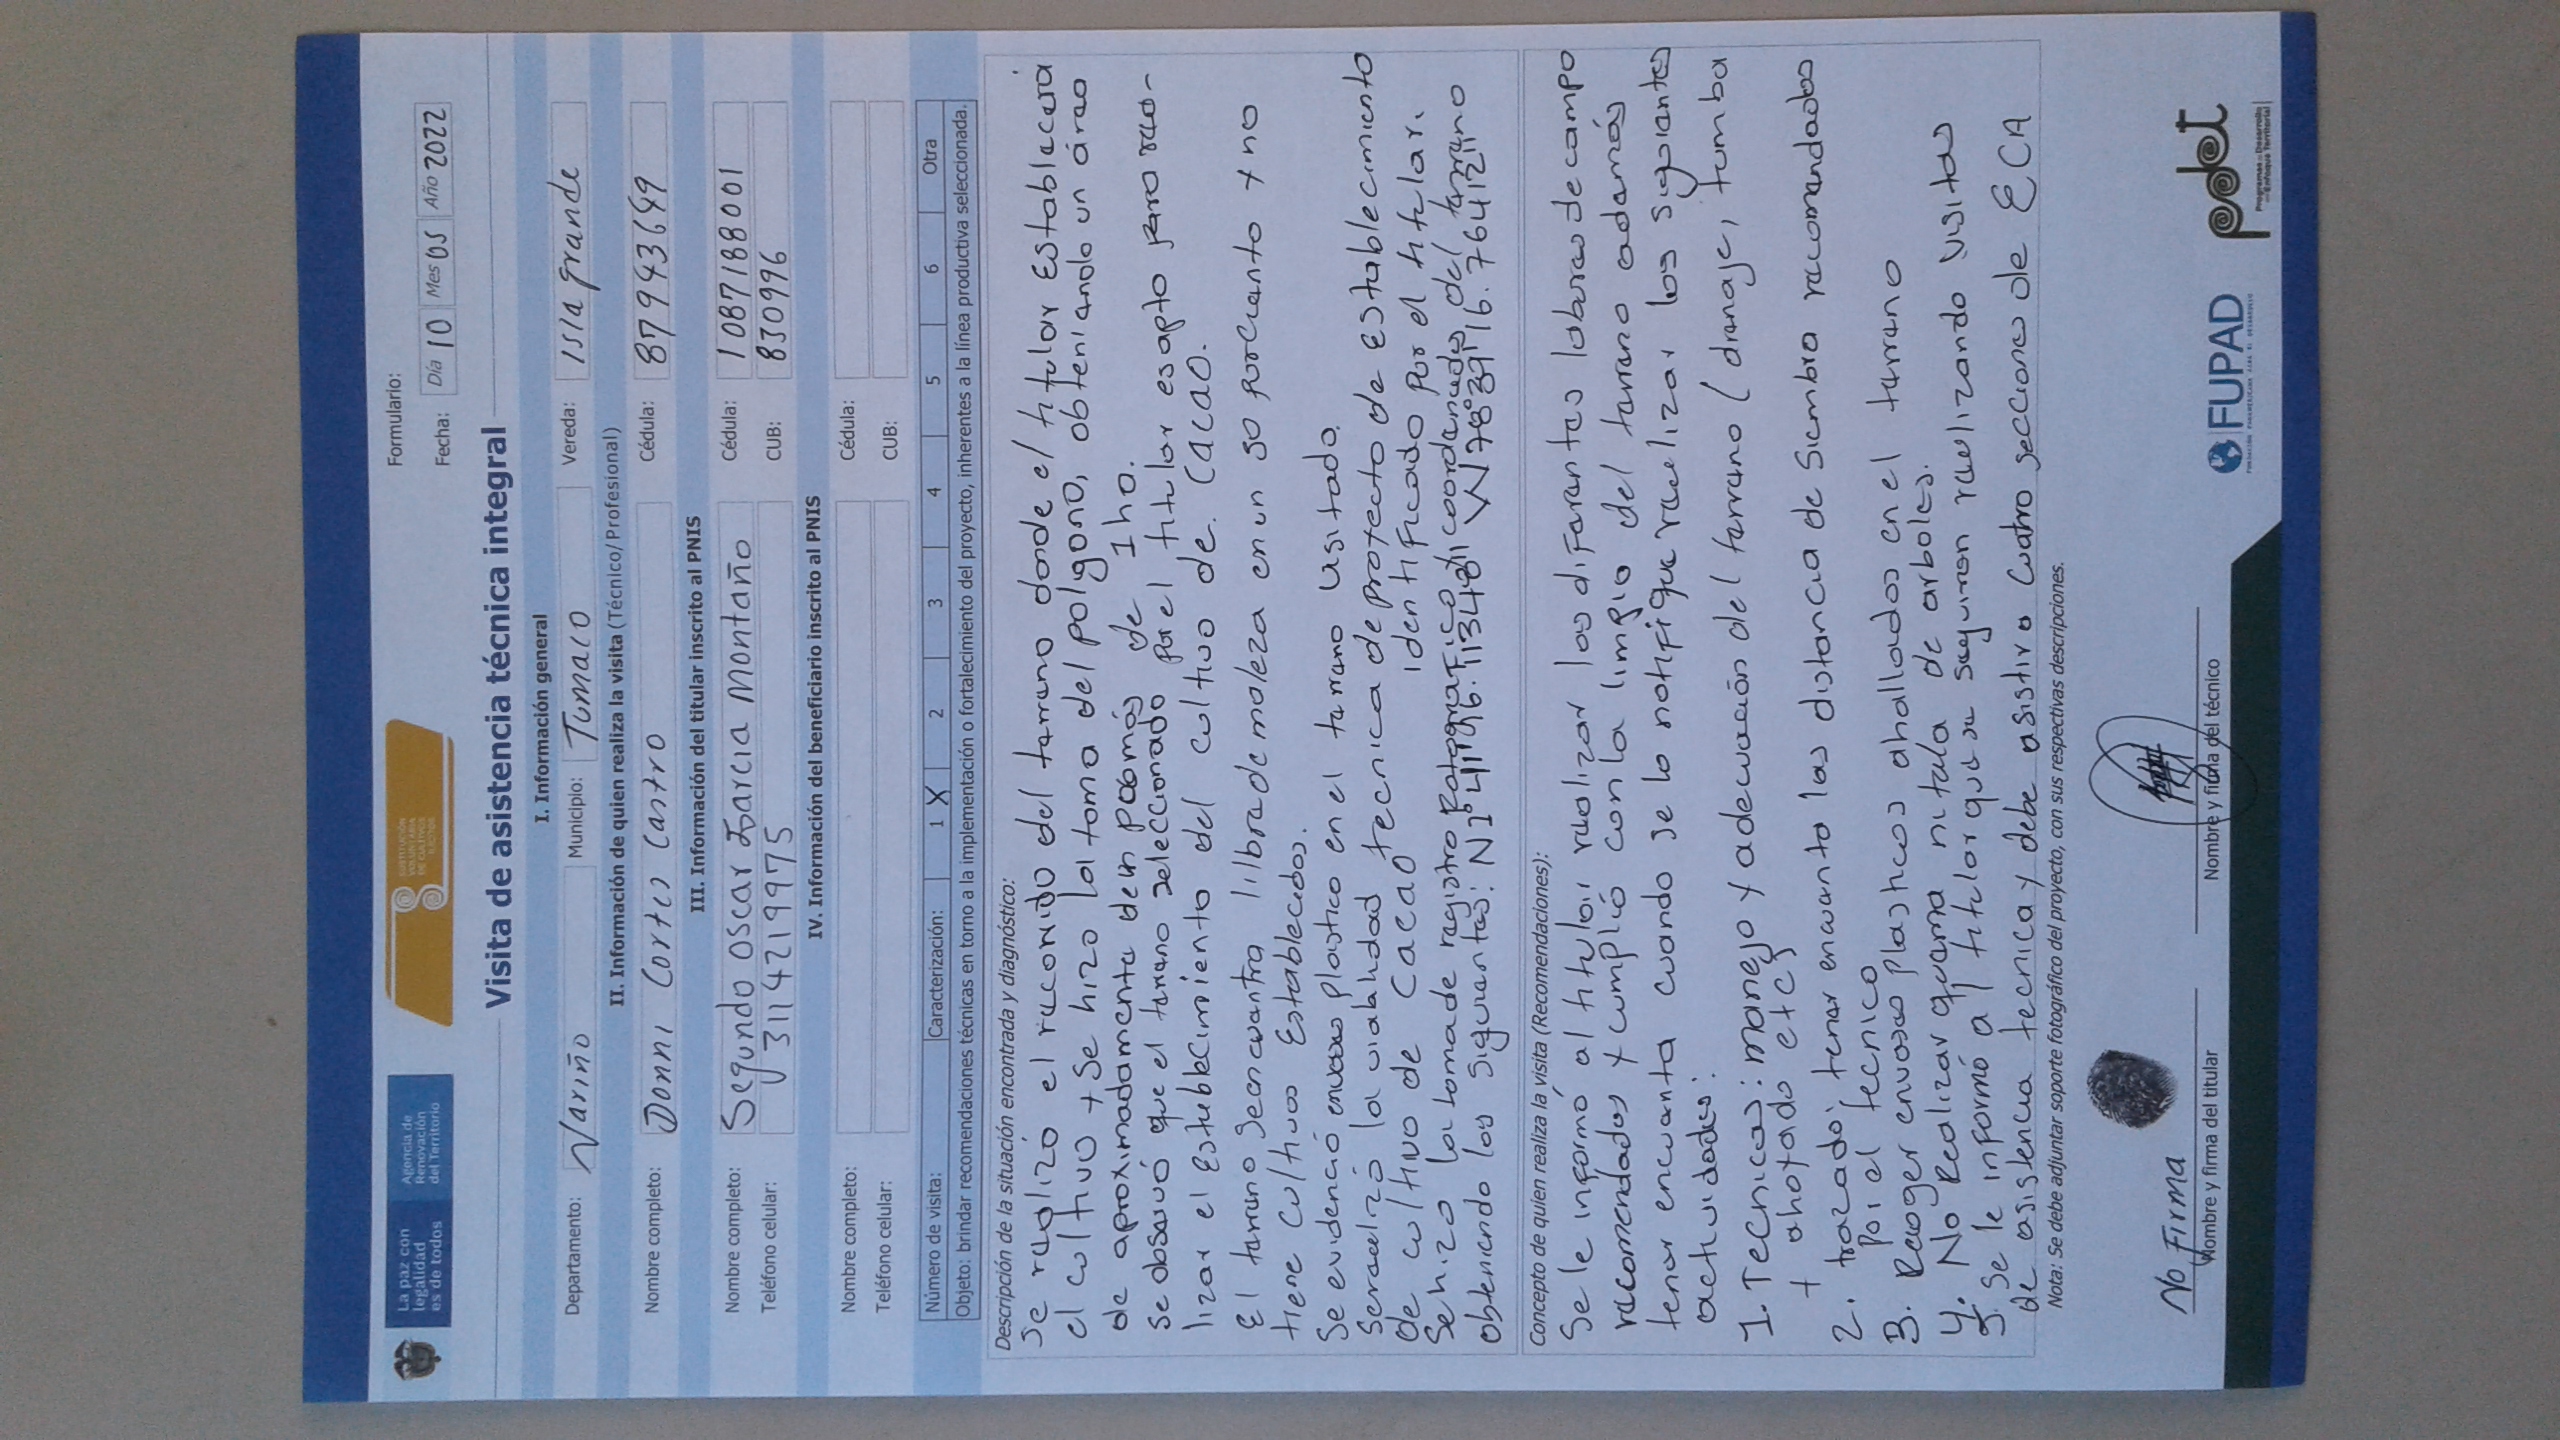 La paz con
legalidad
es de todos
Agencia de
Renovación
del Territorio
SUSTITUCIÓN
VOLUNTARIA
DE CULTIVOS
ILÍCITOS
Formulario:
Fecha: Día 10 Mes 05 Año 2022
Visita de asistencia técnica integral
I. Información general
Departamento: Nariño Municipio: Tumaco Vereda: isla grande
II. Información de quien realiza la visita (Técnico/Profesional)
Nombre completo: Donni Cortes Castro Cédula: 87943649
III. Información del titular inscrito al PNIS
Nombre completo: Segundo Oscar Garcia Montaño Cédula: 1087188001
Teléfono celular: 3114219975 CUB: 830996
IV. Información del beneficiario inscrito al PNIS
Nombre completo: Cédula:
Teléfono celular: CUB:
Número de visita: Caracterización: 1 X 2 3 4 5 6 Otra
Objeto: brindar recomendaciones técnicas en torno a la implementación o fortalecimiento del proyecto, inherentes a la línea productiva seleccionada.
Descripción de la situación encontrada y diagnóstico:
Se realizó el recorrido del terreno donde el titular Establecerá
el cultivo y se hizo la toma del polígono, obteniendo un área
de aproximadamente de 1ha.
se observó que el terreno seleccionado por el titular es apto para rea-
lizar el Establecimiento del cultivo de. Cacao.
El terreno se encuentra libre de maleza en un 50 porciento y no
tiene cultivos Establecidos.
Se evidenció envases plastico en el terreno visitado.
Se realizó la viabilidad tecnica de proyecto de establecimiento
de cultivo de Cacao identificado por el titular.
Se hizo la toma de registro fotografico coordenadas del terreno
obteniendo las siguientes:
Concepto de quien realiza la visita (Recomendaciones):
Se le informó al titular realizar las diferentes labores de campo
recomendadas y cumplió con la limpia del terreno además
tener encuenta cuando se lo notifique realizar las siguientes
actividades:
1. Tecnicas: manejo y adecuación del terreno (drenaje, tumba
y ahoyado etc)
2. trazado; tener encuenta las distancia de Siembra recomendadas
por el tecnico
3. Recoger envases plasticos ahallados en el terreno
4. No Realizar quema ni tala de arboles.
5. Se le informó al titular que se seguiran realizando visitas
de asistencia tecnica y debe asistir a cuatro secciones de ECA
Nota: Se debe adjuntar soporte fotográfico del proyecto, con sus respectivas descripciones.
No Firma
Nombre y firma del titular
Nombre y firma del técnico
FUPAD
FUNDACIÓN PANAMERICANA PARA EL DESARROLLO
pdet
Programas de Desarrollo
con Enfoque Territorial